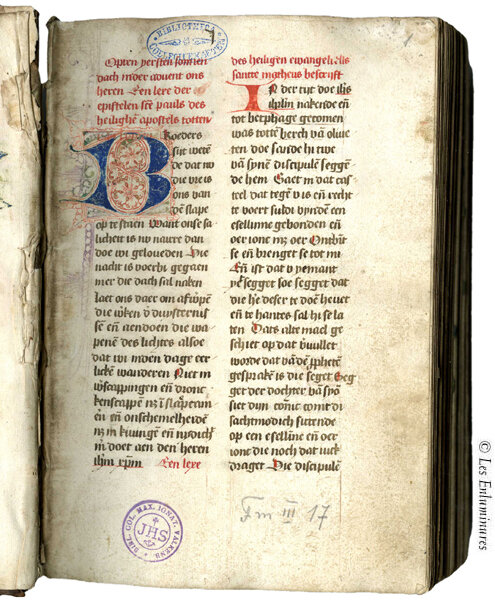 BIBLIOTHECA
1
Opten yersten sonnen
dach moer advent ons
heren Een lexe der
epistelen sẽt pauls des
heilighẽ apostels totten
Broeders
sijt wetẽ
de dat nv
die vre is
ons van
dẽ slape
op te staen Want onse sa
licheit is nv naerre dan
doe wi geloueden Die
nacht is voerbi gegaen
mer die dach sal naken
Laet ons daer om afwpẽ
die wken d duysternis
sẽ ende aendoen die wa
penẽ des lichtes alsoe
dat wi moen dage eer
lickẽ wanderen Niet in
en dronc
kenscappen
eñ onschemelheidẽ
m doet aen den heren
ihm xpm Een lexe
des heiligen ewangelistis
sancte matheus bescrift
IN der tijt doe ihs
ihrlm nakende eñ
tot betphage gecomen
was tottẽ berch vã oliue
ten doe sande hi twe
vã synẽ discipulẽ seggẽ
de hem Gaet in dat cas
teel dat tegẽ v is eñ recht
te voert suldi vijndẽ een
esellinne gebonden eñ
oer ionc mz oer Ontbijt
se eñ bienget se tot mi
Eñ ist dat v yemant
yt segget soe segget dat
die hẽ deser te doẽ heuet
eñ te hantes sal hi se la
ten Dats alte mael ge
schiet op dat vuullet
worde dat vã dẽ pphetẽ
gesprakẽ is die seget Seg
ger der dochter vã syõ
siet dijn coninc comt di
sachtmodich sittende
op een eselline eñ oer
ionc die noch dat iuck
draget Die discipulẽ
Fm III 17
BIBL. COL. MAX. IGNAT. VALKENB.
JHS
© Les Enluminures